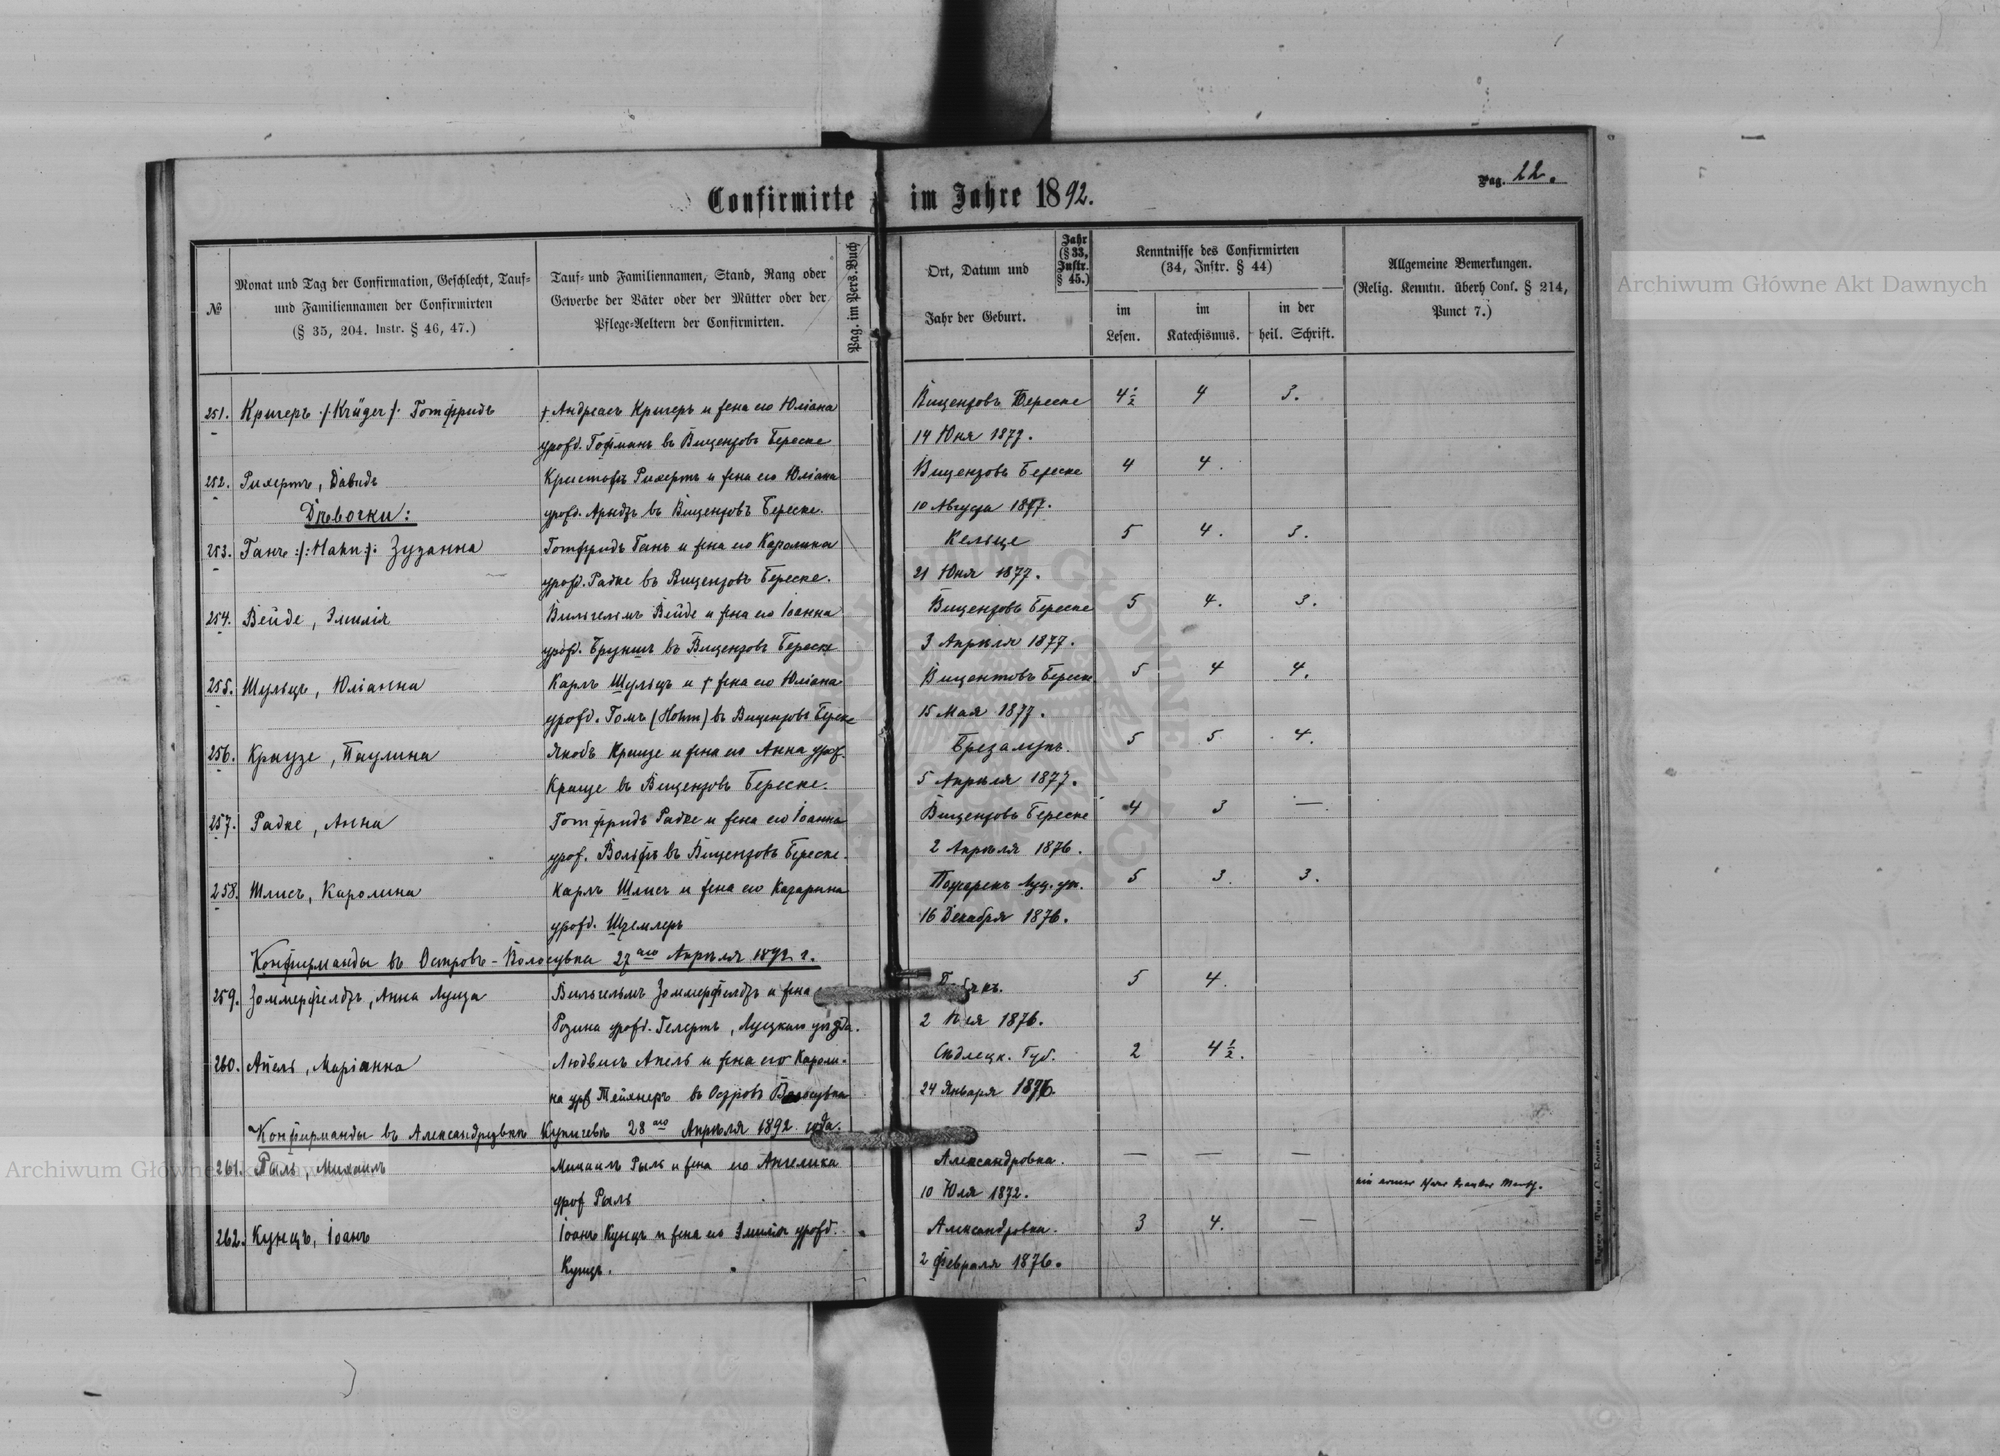 Confirmirte im Jahre 1892.
Pag. 22.
№
Monat und Tag der Confirmation, Geschlecht, Tauf-
und Familiennamen der Confirmirten
(§ 35, 204. Instr. § 46, 47.)
Tauf- und Familiennamen, Stand, Rang oder
Gewerbe der Väter oder der Mütter oder der
Pflege-Aeltern der Confirmirten.
Pag. im Pers.Buch
Ort, Datum und
Jahr der Geburt.
Jahr
(§ 33,
Instr.
§ 45.)
Kenntnisse des Confirmirten
(34, Instr. § 44)
im
Lesen.
im
Katechismus.
in der
heil. Schrift.
Allgemeine Bemerkungen.
(Relig. Kenntn. überh Conf. § 214,
Punct 7.)
251. Кригеръ :/Krüger/: Готфридъ † Андреасъ Кригеръ и жена его Юліана Вицентовъ Береске 4½ 4 3.
урожд. Гофманъ въ Вицентовъ Береске 14 Юня 1877.
252. Рихертъ, Давидъ Кристофъ Рихертъ и жена его Юліана Вицентовъ Береске 4 4.
Дѣвочки: урожд. Арндтъ въ Вицентовъ Береске. 10 Августа 1877.
253. Ганъ :/:Hahn:/: Зузанна Готфридъ Ганъ и жена его Каролина Кельце 5 4. 3.
урожд. Радке въ Вицентовъ Береске. 21 Юня 1877.
254. Вейде, Эмилія Вильгельмъ Вейде и жена его Іоанна Вицентовъ Береске 5 4. 3.
урожд. въ Вицентовъ Береске 3 Апрѣля 1877.
255. Шульцъ, Юліанна Карлъ Шульцъ и † жена его Юліана Вицентовъ Береске 5 4 4.
урожд. Гомъ (Hohm) въ Вицентовъ Береске 15 Мая 1877.
256. Краузе, Паулина Якобъ Краузе и жена его Анна урож. 5 5 4.
Краузе въ Вицентовъ Береске. 5 Апрѣля 1877.
257. Радке, Анна Готфридъ Радке и жена его Іоанна Вицентовъ Береске 4 3 —
урож. Вольфъ въ Вицентовъ Береске. 2 Апрѣля 1876.
258. Шлисъ, Каролина Карлъ Шлисъ и жена его Катарина Луц. уѣз. 5 3. 3.
урожд. 16 Декабря 1876.
Конфирманды въ Островъ-Волосувка 27го Апрѣля 1892 г.
259. Зоммерфелдтъ, Анна Луиза Вильгельмъ Зоммерфелдтъ и жена 5 4.
Розина урожд. Гелертъ, Луцкаго уѣзда. 2 1876.
260. Апель, Маріанна Людвигъ Апель и жена его Кароли- Сѣдлецк. Губ. 2 4½.
на урж въ Островъ Волосувка 24 Января 1876.
Конфирманды въ Александровкѣ Купичевъ 28го Апрѣля 1892 года.
261. Рыль, Михаилъ Михаилъ Рыль и жена его Ангелика Александровка. — — —
урож Рыль 10 Юля 1872.
262. Кунцъ, Іоанъ Іоанъ Кунцъ и жена его Эмилія урожд. Александровка. 3 4. —
Кунцъ. 2 Февраля 1876.
Archiwum Główne Akt Dawnych
Archiwum Główne Akt Dawnych